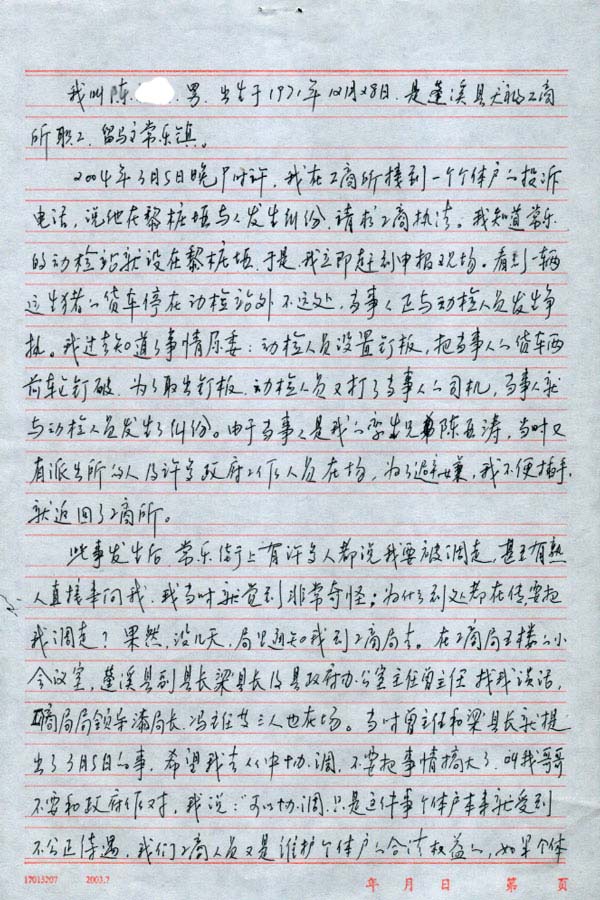 我叫陈 . 男. 出生于1971年12月28日. 是蓬溪县天福工商
所职工. 留驻常乐镇。
2004年3月5日晚9时许. 我在工商所接到一个个体户的投诉
电话, 说他在黎桩垭与人发生纠份. 请求工商执法。我知道常乐
的动检站就设在黎桩垭. 于是. 我立即赶到申报现场. 看到一辆
运生猪的货车停在动检站外不远处, 当事人正与动检人员发生争
执。我过去知道了事情原委: 动检人员设置钉板, 把当事人的货车两
前轮钉破. 为了取出钉板. 动检人员又打了当事人的司机, 当事人就
与动检人员发生了纠份。由于当事人是我的孪生兄弟陈岳涛, 当时又
有派出所的人及许多政府工作人员在场, 为了避嫌, 我不便插手.
就返回了工商所。
此事发生后. 常乐街上有许多人都说我要被调走, 甚至有熟
人直接来问我. 我当时就觉到非常奇怪; 为什么到处都在传要把
我调走? 果然, 没几天, 局里通知我到工商局去。在工商局五楼的小
会议室, 蓬溪县副县长梁县长及县政府办公室主任曾主任 找我谈话,
工商局局领导漆局长. 冯主任等三人也在场。当时曾主任和梁县长就提
出了3月5日的事. 希望我去从中协调, 不要把事情搞大了. 叫我哥哥
不要和政府作对, 我说:“可以协调. 只是这件事个体户本来就受到
不公正待遇, 我们工商人员又是维护个体户的合法权益的, 如果个体
17013207 2003.7 年 月 日 第 页